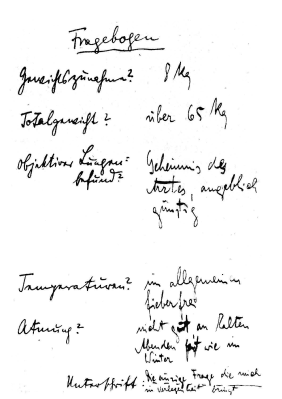 Fragebogen
Gewichtszunahme? 8 kg
Totalgewicht? über 65 Kg
objektiver Lungen= Geheimnis des
befund? Arztes, angeblich
günstig
Temperaturen? im allgemeinen
fieberfrei
Atmung? nicht gut, an kalten
Abenden fast wie im
Winter
Unterschrift: Die einzige Frage die mich
in Verlegenheit bringt